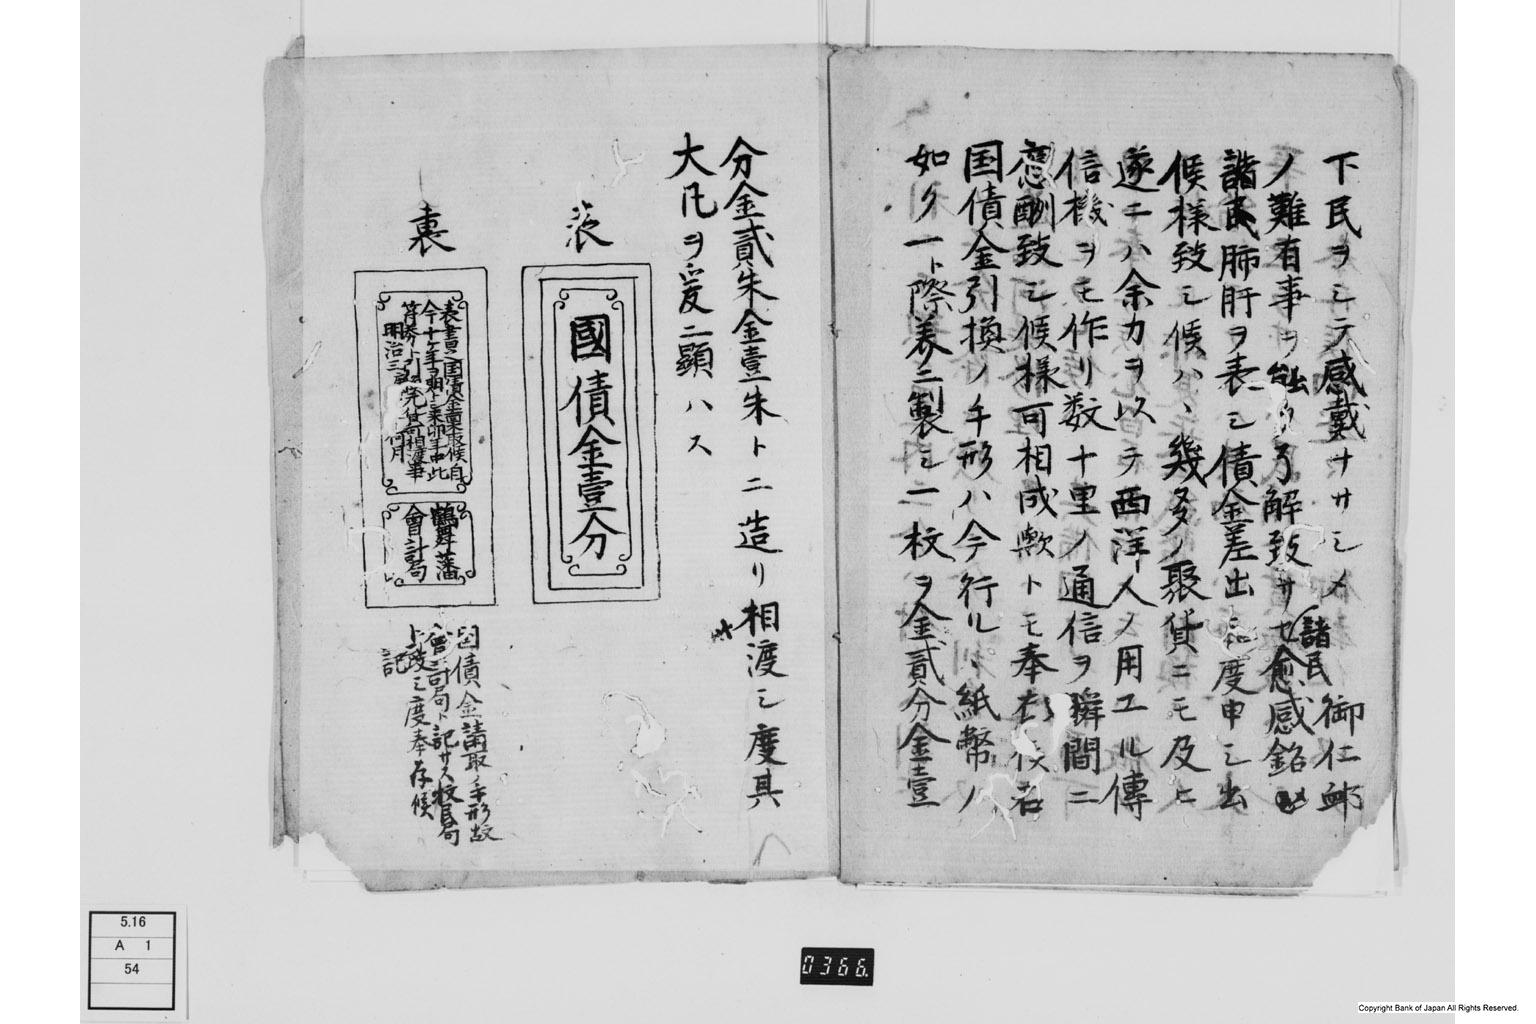 下民ヲシテ感戴ナサシメ諸民御仁邺
ノ難有事ヲ能々了解致サセ愈感銘
諸民肺肝ヲ表シ債金差出度申シ出
候様致シ候ハ、幾多ノ聚貨ニモ及ヒ
遂ニハ余力ヲ以テ西洋人ノ用ユル傳
信機ヲモ作リ数十里ノ通信ヲ瞬間ニ
應酬致シ候様可相成歟トモ奉存候若
国債金引換ノ手形ハ今行ル、紙幣ノ
如ク一ト際美ニ製シ一枚ヲ金貳分金壹
分金貳朱金壹朱トニ造リ相渡シ度其
大凡ヲ爰ニ顕ハス
表
國債金壹分
裏
表書之国債金書面承取候自
今十ケ年ヲ期トシ来卯年中此
手形引換貸可相渡事
明治三 何月
鶴舞藩
會計局
国債金請取ノ手形故
會計局ト記サス校民局
ト改シ度奉存候
記
5.16
A 1
54
0366.
Copyright Bank of Japan All Rights Reserved.